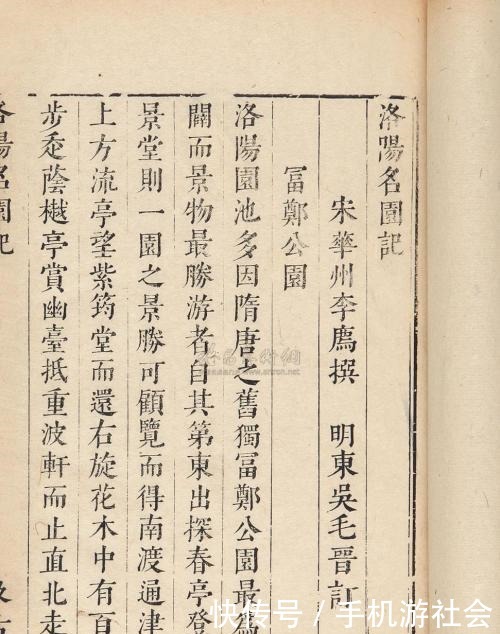 洛陽名園記
宋華州李廌撰　明東吳毛晉訂
冨鄭公園
洛陽園池多因隋唐之舊獨冨鄭公園最爲
闢而景物最勝游者自其第東出探春亭登
景堂則一園之景勝可顧覽而得南渡通津
上方流亭望紫筠堂而還右旋花木中有百
步走蔭樾亭賞幽臺抵重波軒而止直北走
洛陽名園記　汲古
快传号／手机游社会